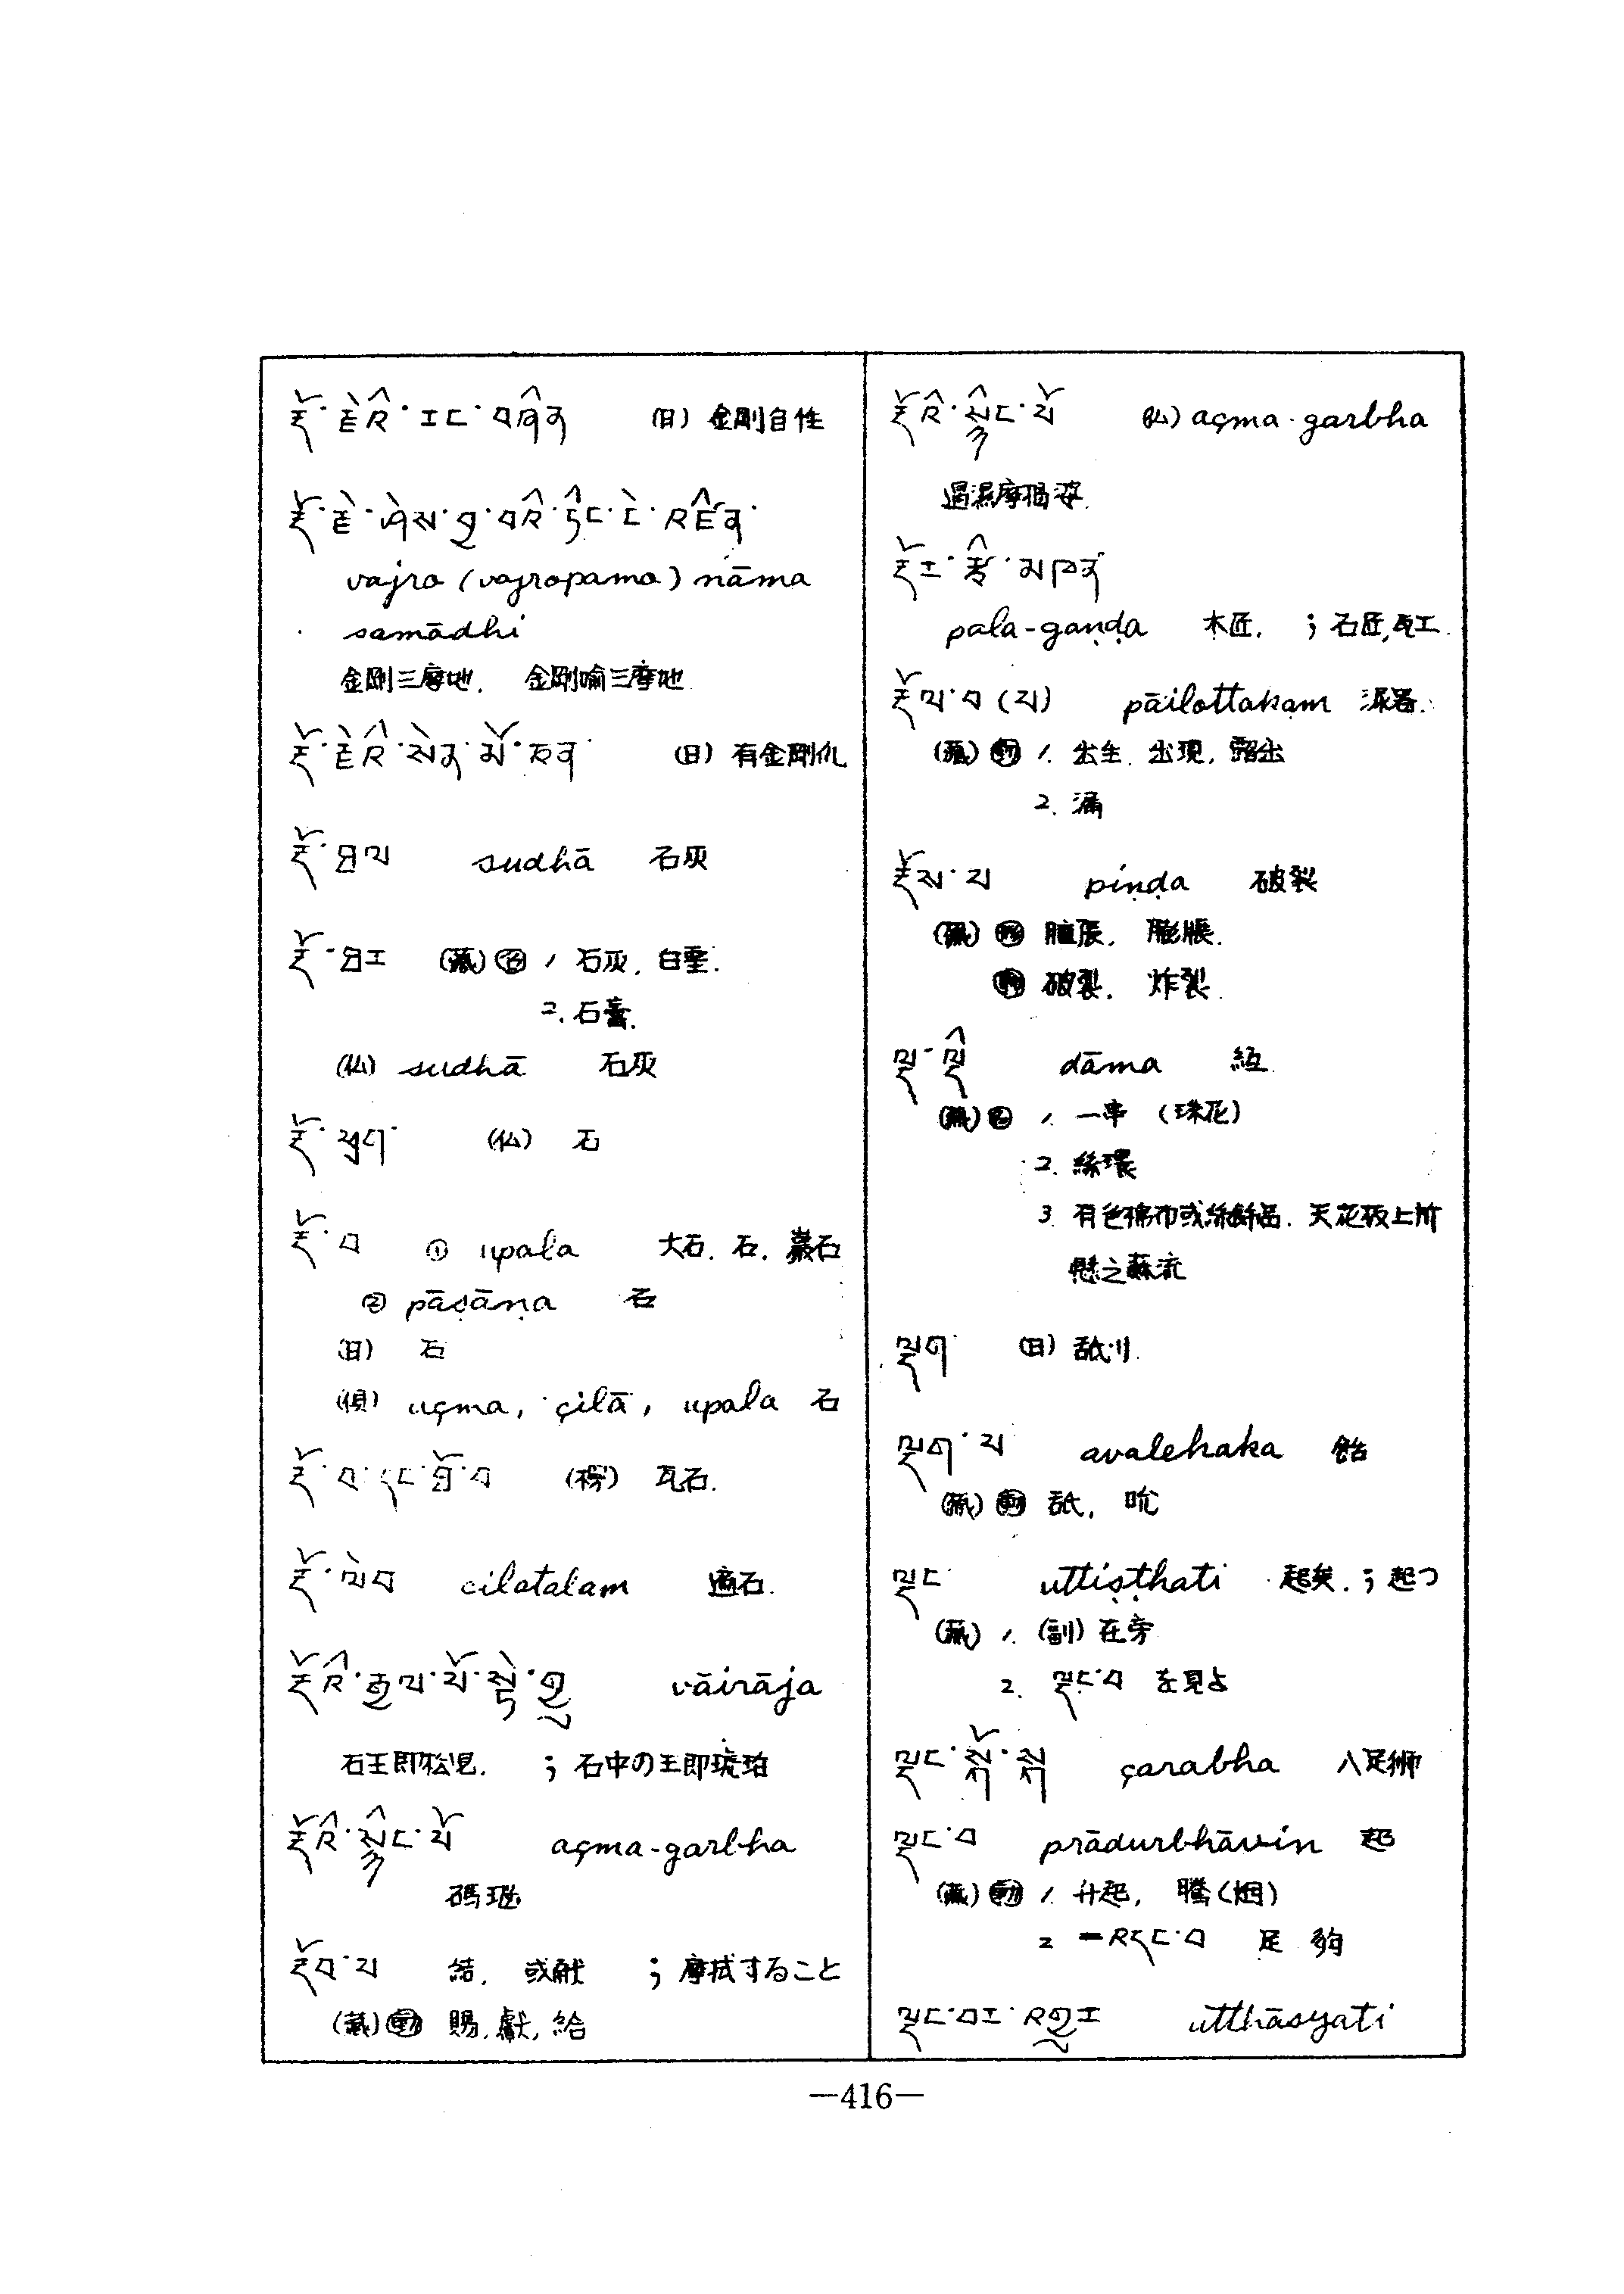 རྡོ་རྗེའི་རང་བཞིན (日) 金剛自性
རྡོ་རྗེ་ཞེས་བྱ་བའི་ཏིང་ངེ་འཛིན་
vajro (vajropama) nāma
samādhi
金剛三摩地. 金剛喻三摩地
རྡོ་རྗེའི་སེན་མོ་ཅན་ (日) 有金剛爪
རྡོ་ཐལ sudhā 石灰
རྡོ་ཐར (蔵) 名 1 石灰, 白堊.
2. 石膏.
(仏) sudhā 石灰
རྡོ་ཕྲུག་ (仏) 石
རྡོ་བ ① upala 大石. 石. 巖石
② pāṣāṇa 石
(日) 石
(倶) açma, çilā, upala 石
རྡོ་བ་དང་ཐོ་བ (榜) 瓦石.
རྡོ་ལེབ cilatalam 適石.
རྡོའི་རྒྱལ་པོ་སྟེ་བྱ vāirāja
石王即松児. ; 石中の王即琥珀
རྡོའི་སྙིང་པོ açma-garbha
碼瑙
རྡོབ་པ 結. 或献 ; 摩拭すること
(蔵) 動 賜, 獻, 給
རྡོའི་སྙིང་པོ (仏) açma-garbha
遏濕摩掲婆.
རྡོར་རྩི་མཁན་
pala-gaṇḍa 木匠. ; 石匠, 瓦工.
རྡོལ་བ (པ) pāilottakaṃ 漏器.
(蔵) 動 1. 出生. 出現. 露出
2. 漏
རྡོས་པ piṇḍa 破裂
(蔵) 腫脹. 膨脹.
破裂. 炸裂.
ལྡ་ལྡི dāma 絙
(蔵) 名 1. 一串 (珠花)
2. 絲環
3. 有色棉布或絲飾品. 天花板上所
懸之蘇流
ལྡག་ (日) 舐リ.
ལྡག་པ avalehaka 飴
(蔵) 動 舐. 吮
ལྡང uttiṣṭhati 起矣. ; 起つ
(蔵) 1. (副) 在旁
2. ལྡང་བ を見よ
ལྡང་སྐོ་སྐ çarabha 八足獅
ལྡང་བ prādurbhāvin 起
(蔵) 動 1. 升起, 騰 (烟)
2 一འདང་བ 足 夠
ལྡང་བར་འགྱུར utthāsyati
—416—